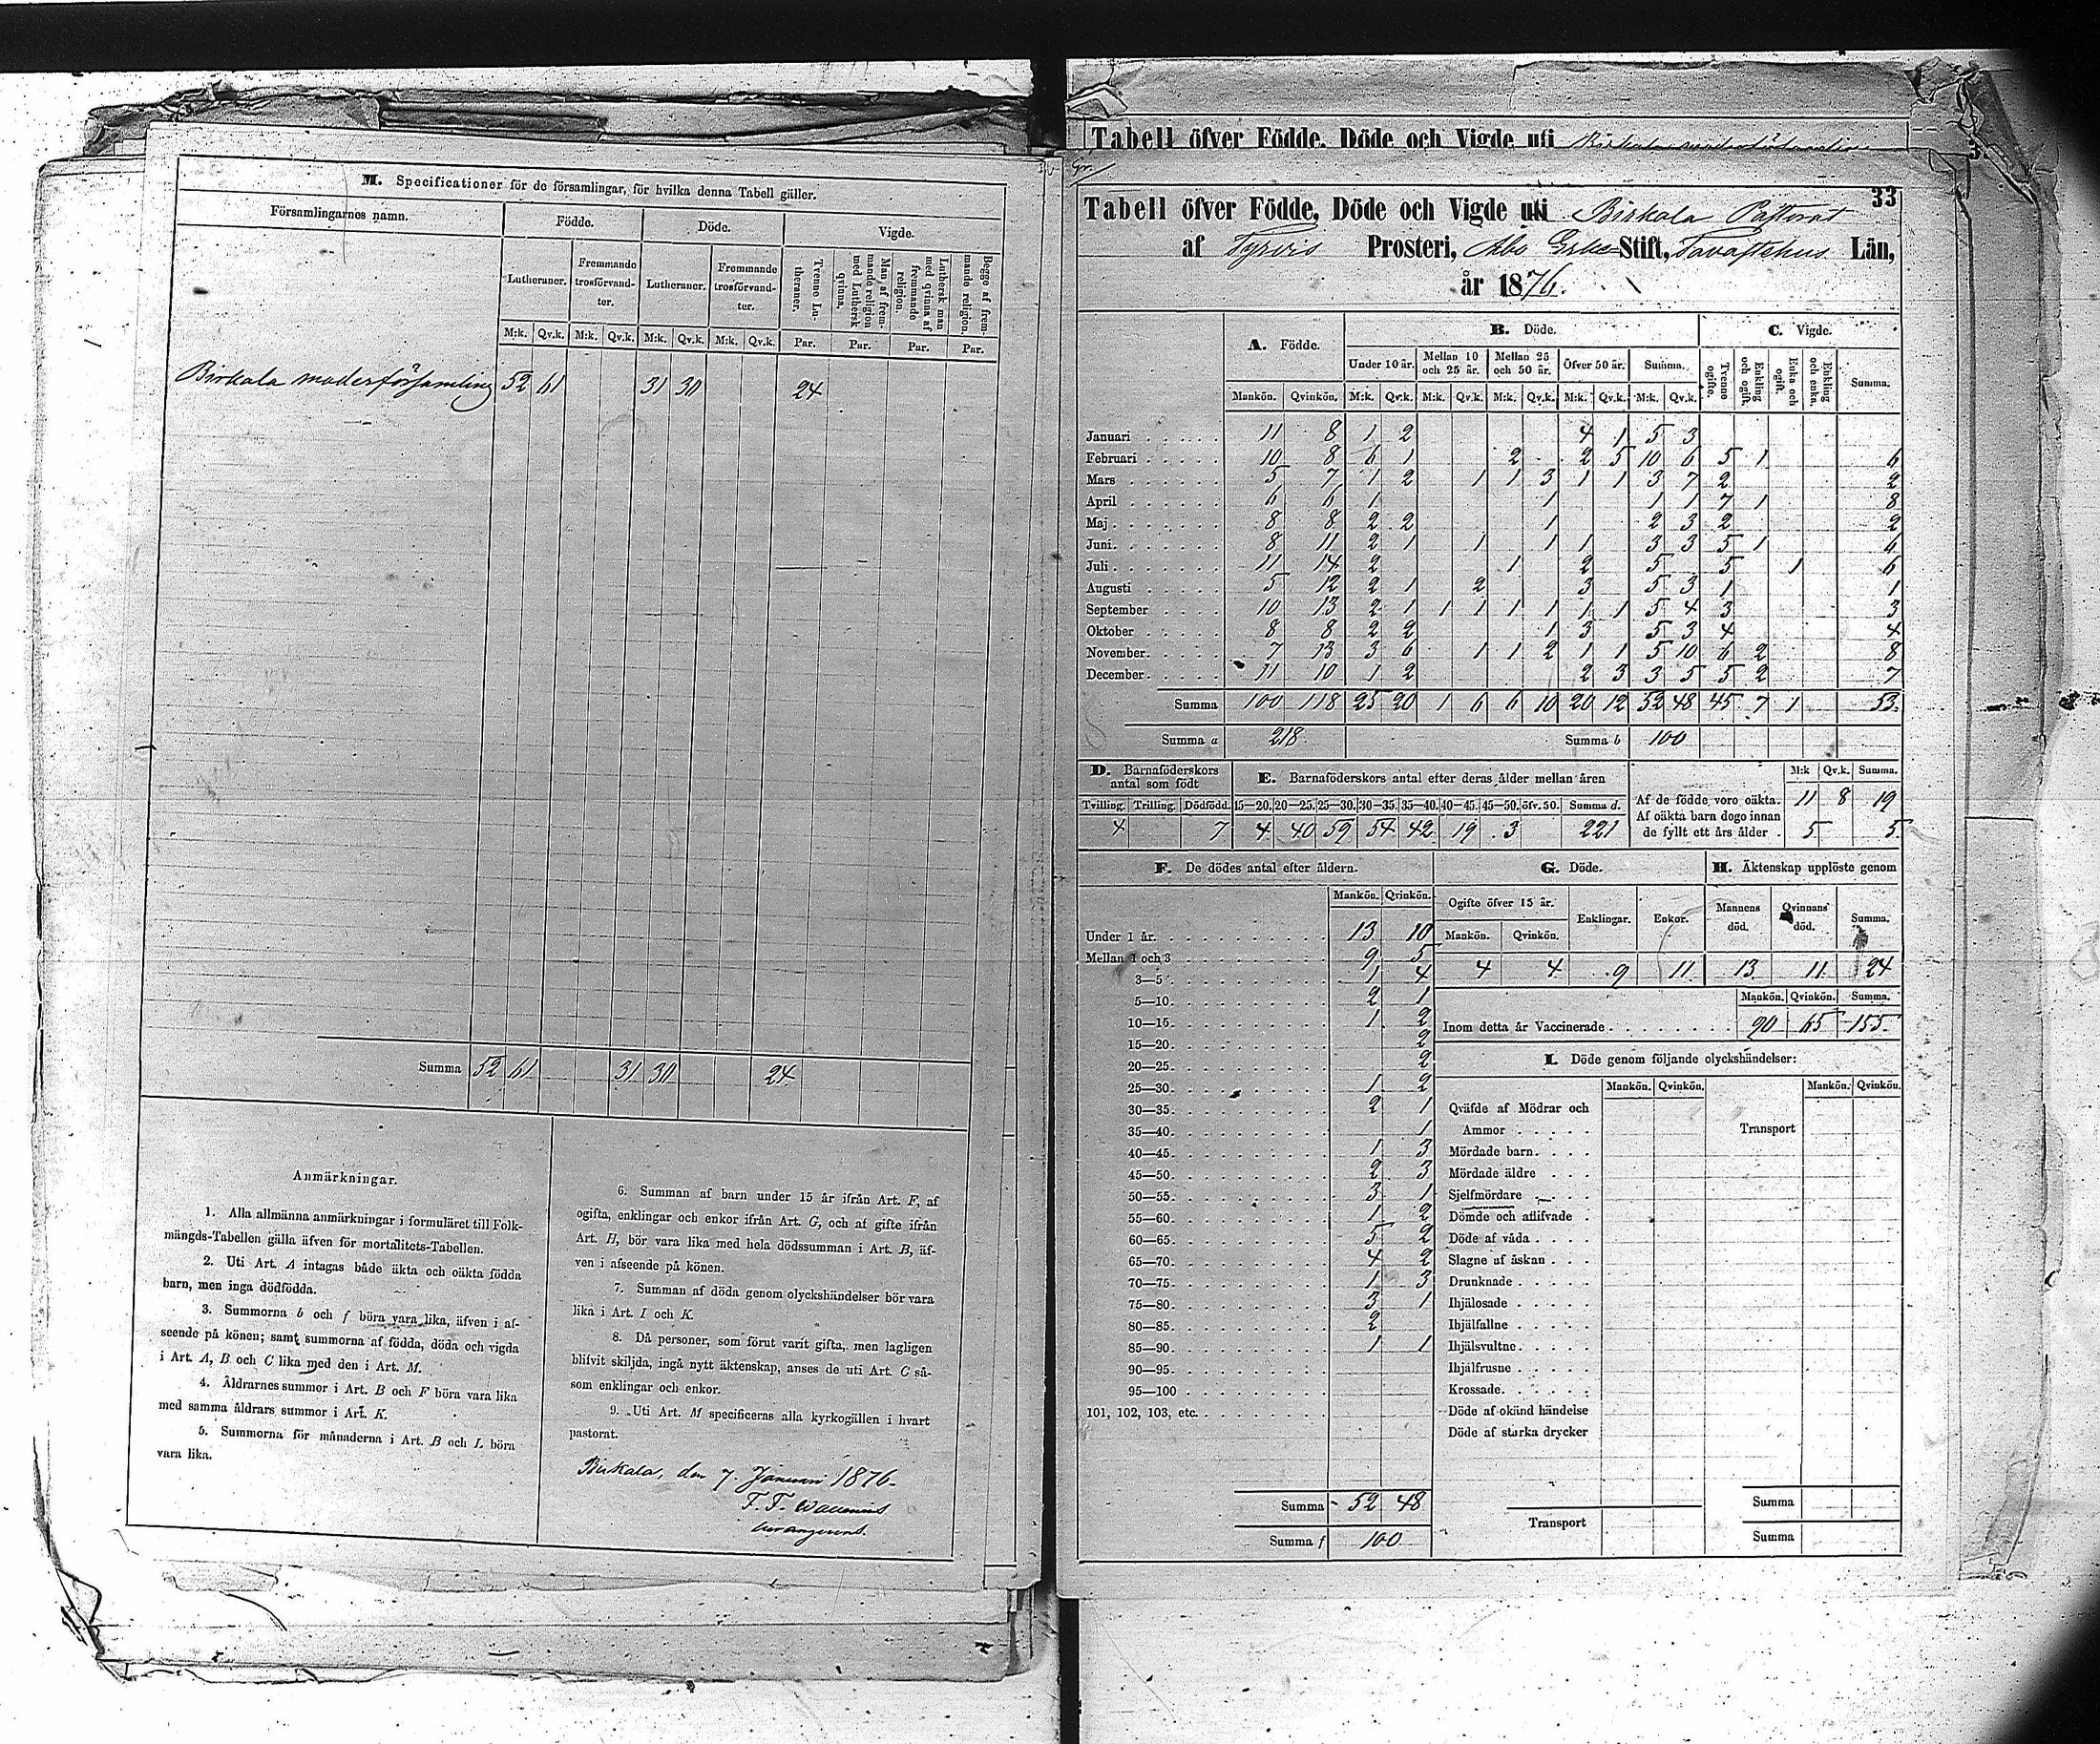 M. Specificationer för de församlingar, för hvilka denna Tabell gäller.
Församlingarnes namn. Födde. Döde. Vigde.
Lutheraner. Fremmande trosförvandter. Lutheraner. Fremmande trosförvandter. Tvenne Lutheraner. Man af fremmande religion med Luthersk qvinna. Luthersk man med qvinna af fremmande religion. Begge af fremmande religion.
M:k. Qv.k. M:k. Qv.k. M:k. Qv.k. M:k. Qv.k. Par. Par. Par. Par.
Birkala moderförsamling 52 61 31 30 24
Summa 52 61 31 30 24
Anmärkningar.
1. Alla allmänna anmärkningar i formuläret till Folk-
mängds-Tabellen gälla äfven för mortalitets-Tabellen.
2. Uti Art. A intagas både äkta och oäkta födda
barn, men inga dödfödda.
3. Summorna b och f böra vara lika, äfven i af-
seende på könen; samt summorna af födda, döda och vigda
i Art. A, B och C lika med den i Art. M.
4. Åldrarnes summor i Art. B och F böra vara lika
med samma åldrars summor i Art. K.
5. Summorna för månaderna i Art. B och L böra
vara lika.
6. Summan af barn under 15 år ifrån Art. F, af
ogifta, enklingar och enkor ifrån Art. G, och af gifte ifrån
Art. H, bör vara lika med hela dödssumman i Art. B, äf-
ven i afseende på könen.
7. Summan af döda genom olyckshändelser bör vara
lika i Art. I och K.
8. Då personer, som förut varit gifta, men lagligen
blifvit skiljda, ingå nytt äktenskap, anses de uti Art. C så-
som enklingar och enkor.
9. Uti Art. M specificeras alla kyrkogällen i hvart
pastorat.
Birkala, den 7. Januari 1876.
F. F. Wallenius
Tabell öfver Födde, Döde och Vigde uti Birkala moderförsamling
33
Tabell öfver Födde, Döde och Vigde uti Birkala Pastorat
af Tyrvis Prosteri, Åbo Erke-Stift, Tavastehus Län,
år 1876.
A. Födde. B. Döde. C. Vigde.
Under 10 år. Mellan 10 och 25 år. Mellan 25 och 50 år. Öfver 50 år. Summa. Tvenne ogifte. Enkling och ogift. Enka och ogift. Enkling och enka. Summa.
Mankön. Qvinkön. M:k. Qv.k. M:k. Qv.k. M:k. Qv.k. M:k. Qv.k. M:k. Qv.k.
Januari 11 8 1 2 4 1 5 3
Februari 10 8 6 1 2 2 5 10 6 5 1 6
Mars 5 7 1 2 1 1 3 1 1 3 7 2 2
April 6 6 1 1 1 1 7 1 8
Maj 8 8 2 2 1 2 3 2 2
Juni 8 11 2 1 1 1 1 3 3 5 1 6
Juli 11 14 2 1 2 5 5 1 6
Augusti 5 12 2 1 2 3 5 3 1 1
September 10 13 2 1 1 1 1 1 1 1 5 4 3 3
Oktober 8 8 2 2 1 3 5 3 4 4
November 7 13 3 6 1 1 2 1 1 5 10 6 2 8
December 11 10 1 2 2 3 3 5 5 2 7
Summa 100 118 25 20 1 6 6 10 20 12 52 48 45 7 1 53
Summa a 218 Summa b 100
D. Barnaföderskors antal som födt E. Barnaföderskors antal efter deras ålder mellan åren M:k Qv.k. Summa.
Tvilling. Trilling. Dödfödd. 15—20. 20—25. 25—30. 30—35. 35—40. 40—45. 45—50. öfv. 50. Summa d.
4 7 4 40 59 54 42 19 3 221
Af de födde voro oäkta. 11 8 19
Af oäkta barn dogo innan de fyllt ett års ålder 5 5
F. De dödes antal efter åldern. G. Döde. H. Äktenskap upplöste genom
Mankön. Qvinkön. Ogifte öfver 15 år. Enklingar. Enkor. Mannens död. Qvinnans död. Summa.
Mankön. Qvinkön.
4 4 9 11 13 11 24
Under 1 år. 13 10
Mellan 1 och 3 9 5
3—5 1 4
5—10. 2 1
10—15. 1 2
15—20. 2
20—25. 2
25—30. 1 2
30—35. 2 1
35—40. 1
40—45. 1 3
45—50. 2 3
50—55. 3 1
55—60. 1 2
60—65. 5 2
65—70. 4 2
70—75. 1 3
75—80. 3 1
80—85. 2
85—90. 1 1
90—95.
95—100
101, 102, 103, etc.
Summa 52 48
Summa f 100
Mankön. Qvinkön. Summa.
Inom detta år Vaccinerade 90 65 155
I. Döde genom följande olyckshändelser:
Mankön. Qvinkön. Mankön. Qvinkön.
Qväfde af Mödrar och
Ammor Transport
Mördade barn
Mördade äldre
Sjelfmördare
Dömde och aflifvade
Döde af våda
Slagne af åskan
Drunknade
Ihjälosade
Ihjälfallne
Ihjälsvultne
Ihjälfrusne
Krossade
Döde af okänd händelse
Döde af starka drycker
Summa
Transport
Summa